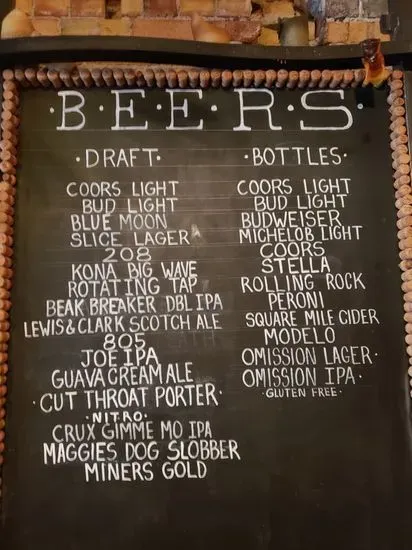 ·B·E·E·R·S·
·DRAFT·
COORS LIGHT
BUD LIGHT
BLUE MOON
SLICE LAGER
208
KONA BIG WAVE
ROTATING TAP
BEAK BREAKER DBL IPA
LEWIS & CLARK SCOTCH ALE
805
JOE IPA
GUAVA CREAM ALE
·CUT THROAT PORTER·
·NITRO·
CRUX GIMME MO IPA
MAGGIES DOG SLOBBER
MINERS GOLD
·BOTTLES·
COORS LIGHT
BUD LIGHT
BUDWEISER
MICHELOB LIGHT
COORS
STELLA
ROLLING ROCK
PERONI
SQUARE MILE CIDER
MODELO
OMISSION LAGER·
OMISSION IPA·
·GLUTEN FREE·